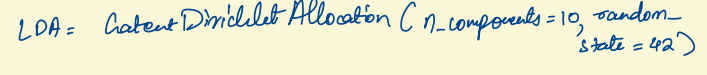 LDA = Latent Dirichlet Allocation ( n_components = 10, random_
state = 42 )